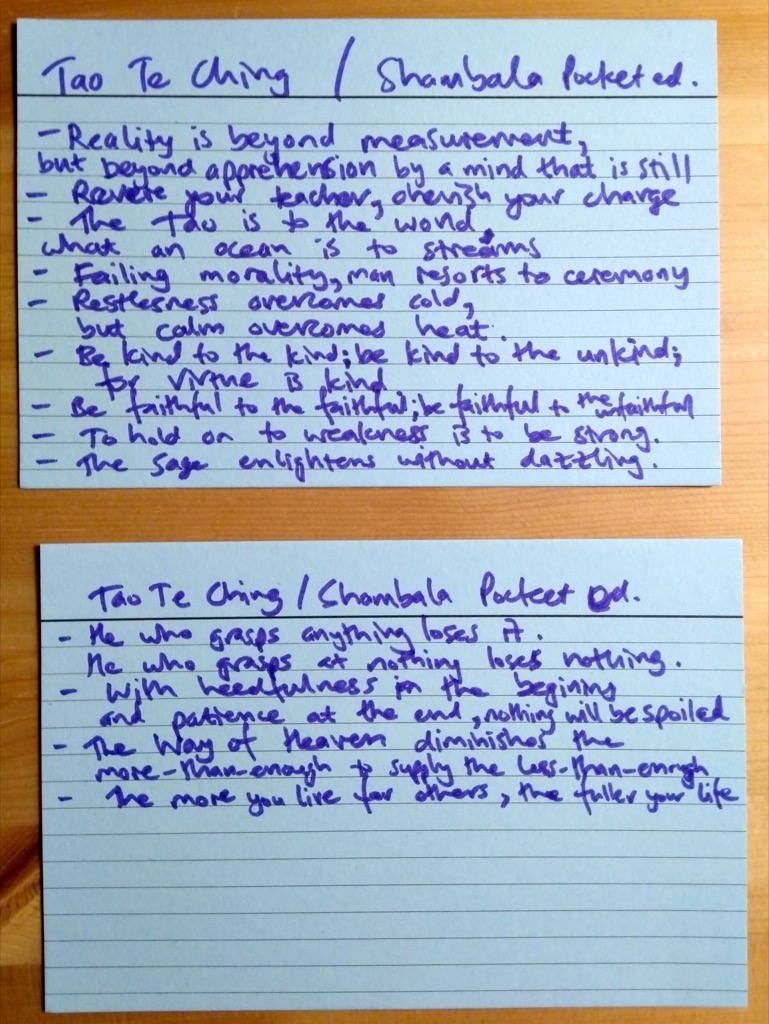 Tao Te Ching / Shambala Pocket ed.
- Reality is beyond measurement,
but beyond apprehension by a mind that is still
- Revere your teacher, cherish your charge
- The Tao is to the world,
what an ocean is to streams
- Failing morality, man resorts to ceremony
- Restlesness overcomes cold,
but calm overcomes heat.
- Be kind to the kind; be kind to the unkind;
for Virtue is kind
- Be faithful to the faithful; be faithful to the unfaithful
- To hold on to weakness is to be strong.
- The Sage enlightens without dazzling.
Tao Te Ching / Shambala Pocket Ed.
- He who grasps anything loses it.
He who grasps at nothing loses nothing.
- With heedfulness in the begining
and patience at the end, nothing will be spoiled
- The Way of Heaven diminishes the
more-than-enough to supply the less-than-enough
- The more you live for others, the fuller your life